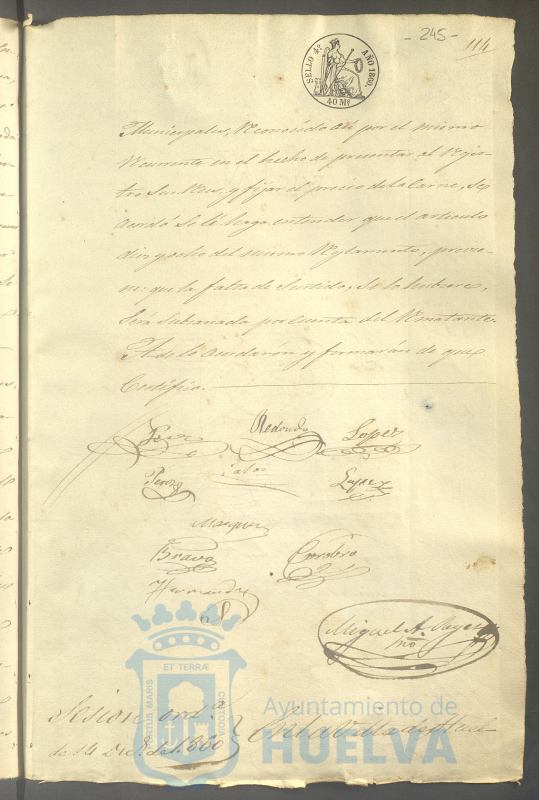 - 245 -
114
SELLO 4º AÑO 1860.
40 Mº
Municipales, reconocido así por el mismo
recurrente en el hecho de presentar al Regis-
tro sus reses, y fijar el precio de la carne, se
acordó se le haga entender que el artículo
diez y ocho del mismo Reglamento, previe-
ne: que la falta de surtido, si la hubiere,
será subsanada por cuenta del rematante.
Así lo acordaron y firmarán de que
Certifico.
Redondo Lopez
Perez Lopez
Marquez
Bravo
Hernandez
Miguel A.
Sesion ord.ª
de 14 Dic.e de 1860
En la Villa de Huel-
ET TERRÆ
PORTUS MARIS
CUSTODIA
Ayuntamiento de
HUELVA